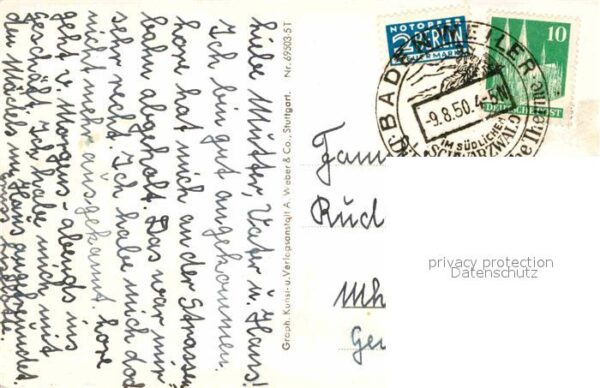 Liebe Mutter, Vater u. Hans!
Ich bin gut angekommen.
Lore hat mich an der Strassen-
bahn abgeholt. Das war mir
sehr recht. Ich habe mich doch
nicht mehr ausgekannt. Lore
geht v. Morgens - abends ins
Geschäft. Ich habe mich mit
den Mädels u. Hans angefreundet.
Graph. Kunst- u. Verlagsanstalt A. Weber & Co., Stuttgart. Nr. 69503 5T
NOTOPFER
2 BERLIN
STEUERMARKE
10
DEUTSCHE POST
BADENWEILER
-9.8.50.
IM SÜDLICHEN
SCHWARZWALD
Fam
Rud
Mh
Ge
privacy protection
Datenschutz